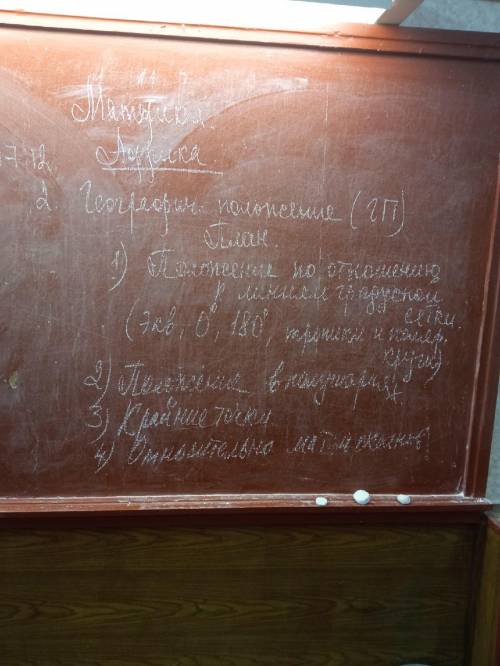 Африка.
2. Географич. положение (ГП)
План.
1) Положение по отношению
к линиям градусной
сетки.
(Экв, 0°, 180°, тропики и поляр.
круги)
2) Положение в полушариях
3) Крайние точки
4) Относительно мат. и океанов